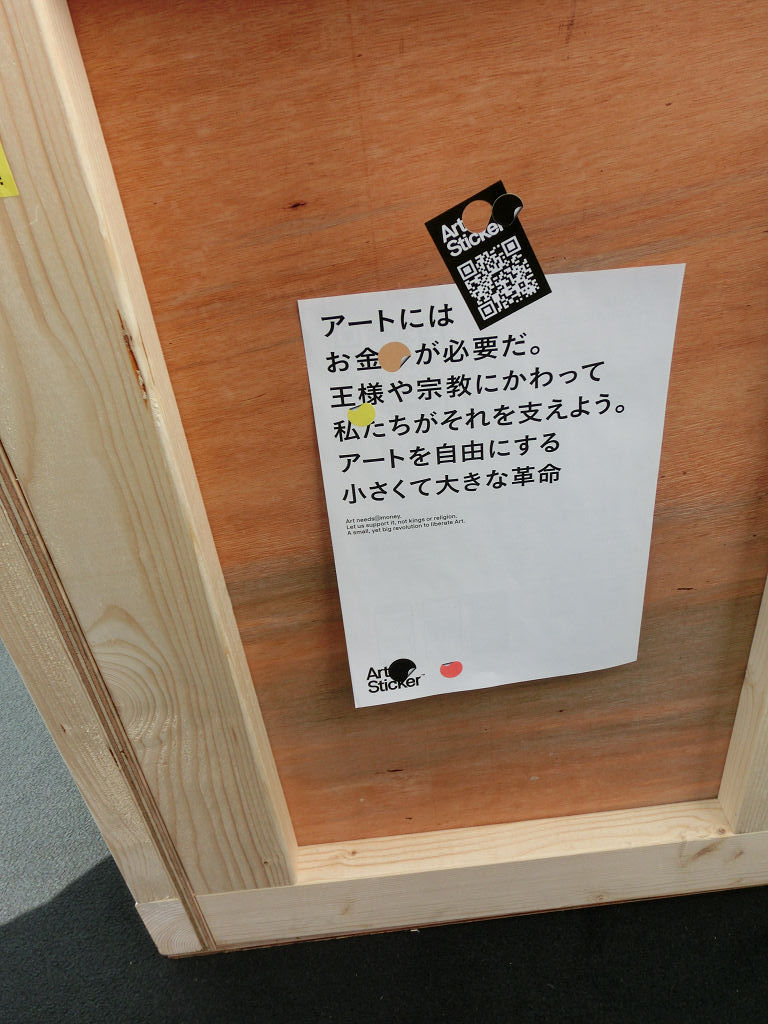 Art
Sticker
アートには
お金が必要だ。
王様や宗教にかわって
私たちがそれを支えよう。
アートを自由にする
小さくて大きな革命
Art needs money.
Let us support it, not kings or religion.
A small, yet big revolution to liberate Art.
Art
Sticker™